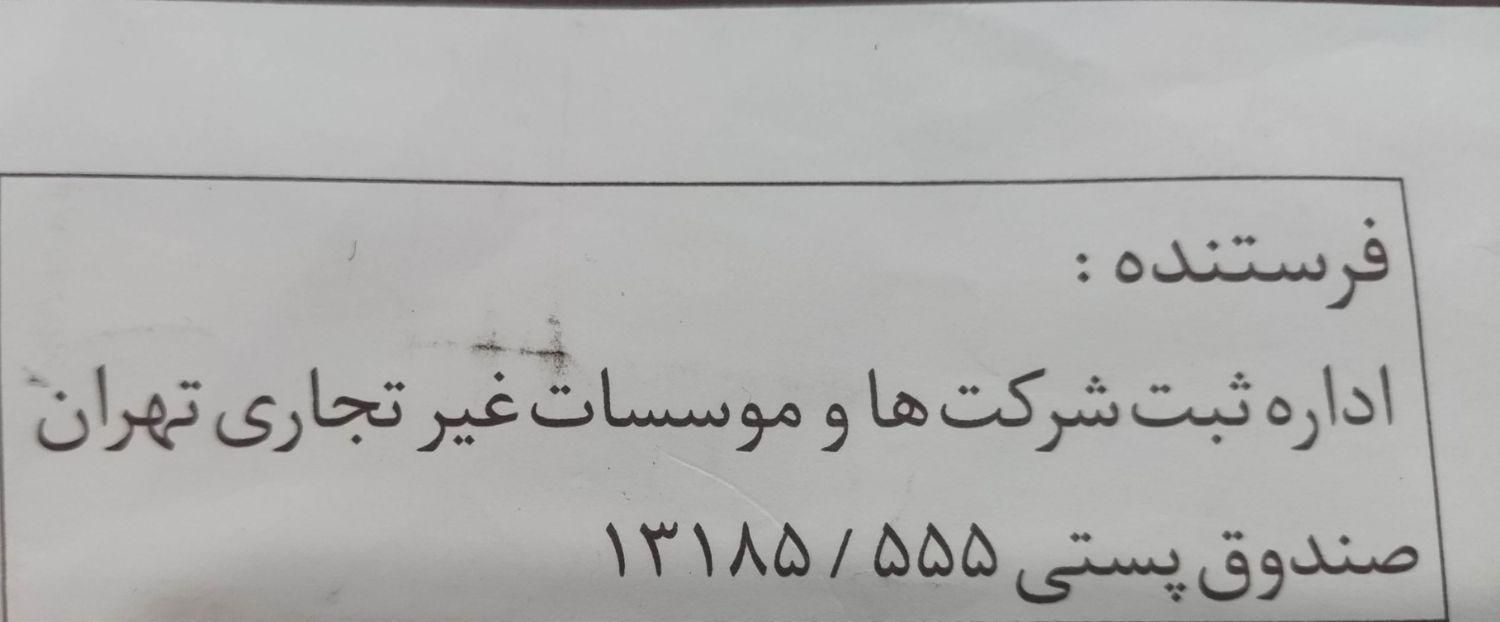 فرستنده :
اداره ثبت شرکت ها و موسسات غیر تجاری تهران
صندوق پستی ۵۵۵ / ۱۳۱۸۵